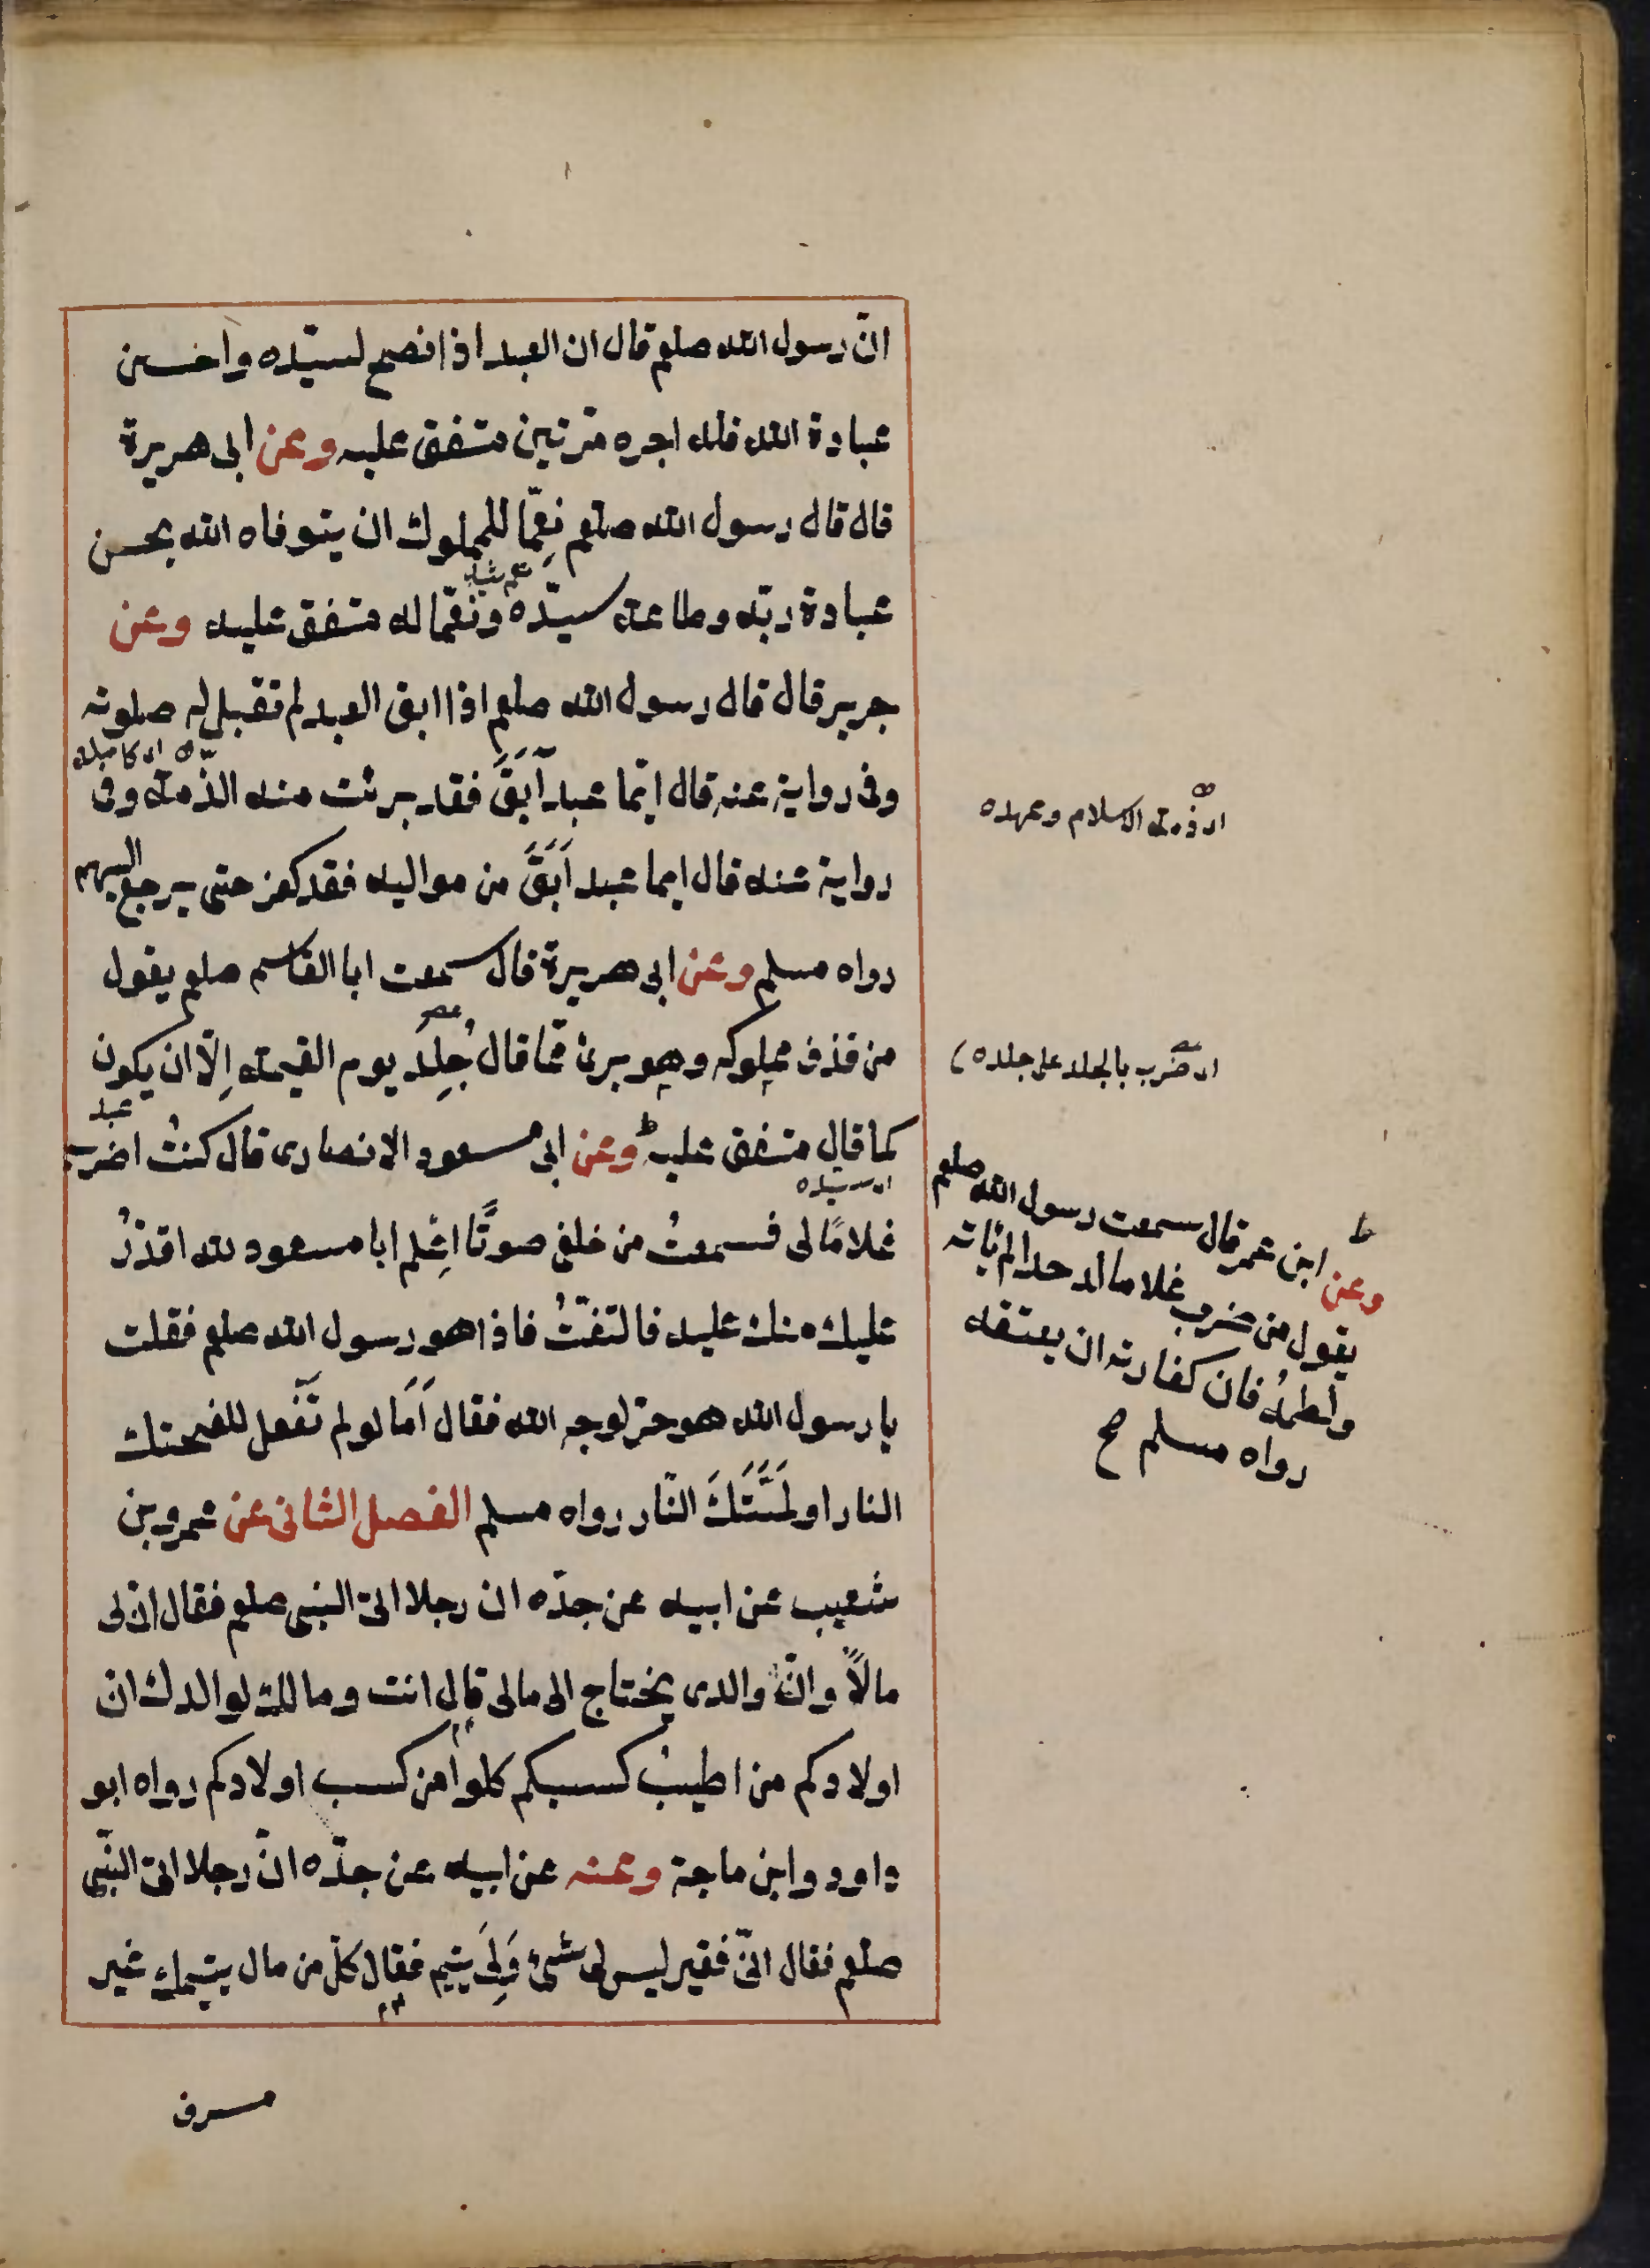 انّ رسول الله صلعم قال ان العبد اذا نصح لسيّده واحسن
عبادة الله فله اجره مرّتين متفق عليه وعن ابى هريرة
قال قال رسول الله صلعم نِعِمّا للمملوك ان يتوفاه الله بحسن
عبادة ربّه وطاعة سيّده ونعمّا له متفق عليه وعن
جرير قال قال رسول الله صلعم اذا ابق العبد لم تقبل له صلوته
اى كاملة
وفى رواية عنه قال ايّما عبد اَبَقَ فقد برئت منه الذّمة وفى
رواية عنه قال ايما عبد اَبَقَ من مواليه فقد كفر حتى يرجع اليهم
رواه مسلم وعن ابى هريرة قال سمعت ابا القاسم صلعم يقول
من قذف مملوكه وهو برئ ممّا قال جُلِدَ يوم القيمة اِلّا ان يكون
كما قال متفق عليه وعن ابى مسعود الانصارى قال كنتُ اضرب
اى سيده
غلامًا لى فسمعتُ من خلفى صوتًا اِعْلم ابا مسعود لله اقدرُ
عليك منك عليه فالتفتُّ فاذا هو رسول الله صلعم فقلت
يا رسول الله هو حرّ لوجه الله فقال اَمَا لو لم تَفْعل للفحتك
النار او لَمَسَّتْكَ النّار رواه مسلم الفصل الثانى عن عمرو بن
شعيب عن ابيه عن جدّه ان رجلا اتى النبى صلعم فقال انّ لى
مالاً وانّ والدى يحتاج الى مالى قال انت ومالك لوالدك ان
اولادكم من اطيب كسبكم كلوا من كسب اولادكم رواه ابو
داود وابن ماجة وعنه عن ابيه عن جدّه انّ رجلا اتى النّبى
صلعم فقال انّى فقير ليس لى شئ وَلِىَ يتيم فقال كل من مال يتيمك غير
مسرف
اى ذمة الاسلام وعهده
اى ضرب بالجلد على جلده
وعن ابن عمر قال سمعت رسول الله صلعم
يقول من ضرب غلاما له حدا لم ياته
او لطمه فان كفارته ان يعتقه
رواه مسلم صح